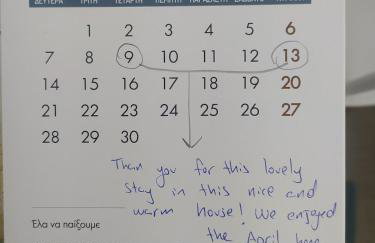 ΔΕΥΤΕΡΑ ΤΡΙΤΗ ΤΕΤΑΡΤΗ ΠΕΜΠΤΗ ΠΑΡΑΣΚΕΥΗ ΣΑΒΒΑΤΟ
1 2 3 4 5 6
7 8 9 10 11 12 13
14 15 16 17 18 19 20
21 22 23 24 25 26 27
28 29 30
Than you for this lovely
stay in this nice and
warm house! We enjoyed
the April
Έλα να παίξουμε